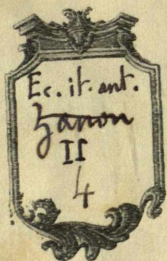 Ec. it. ant.
Zanon
II
4